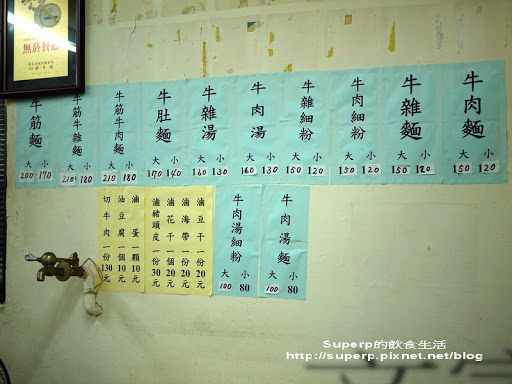 無菸餐廳
牛肉麵
大 小
150 120
牛雜麵
大 小
150 120
牛肉細粉
大 小
150 120
牛雜細粉
大 小
150 120
牛肉湯
大 小
160 130
牛雜湯
大 小
160 130
牛肚麵
大 小
170 140
牛筋牛肉麵
大 小
210 180
牛筋牛雜麵
大 小
210 180
牛筋麵
大 小
200 170
牛肉湯麵
大 小
100 80
牛肉湯細粉
大 小
100 80
滷豆干一份20元
滷海帶一份20元
滷花干一個20元
滷豬頭皮一份30元
滷蛋一顆10元
油豆腐一個10元
切牛肉一份130元
Superp的飲食生活
http://superp.pixnet.net/blog